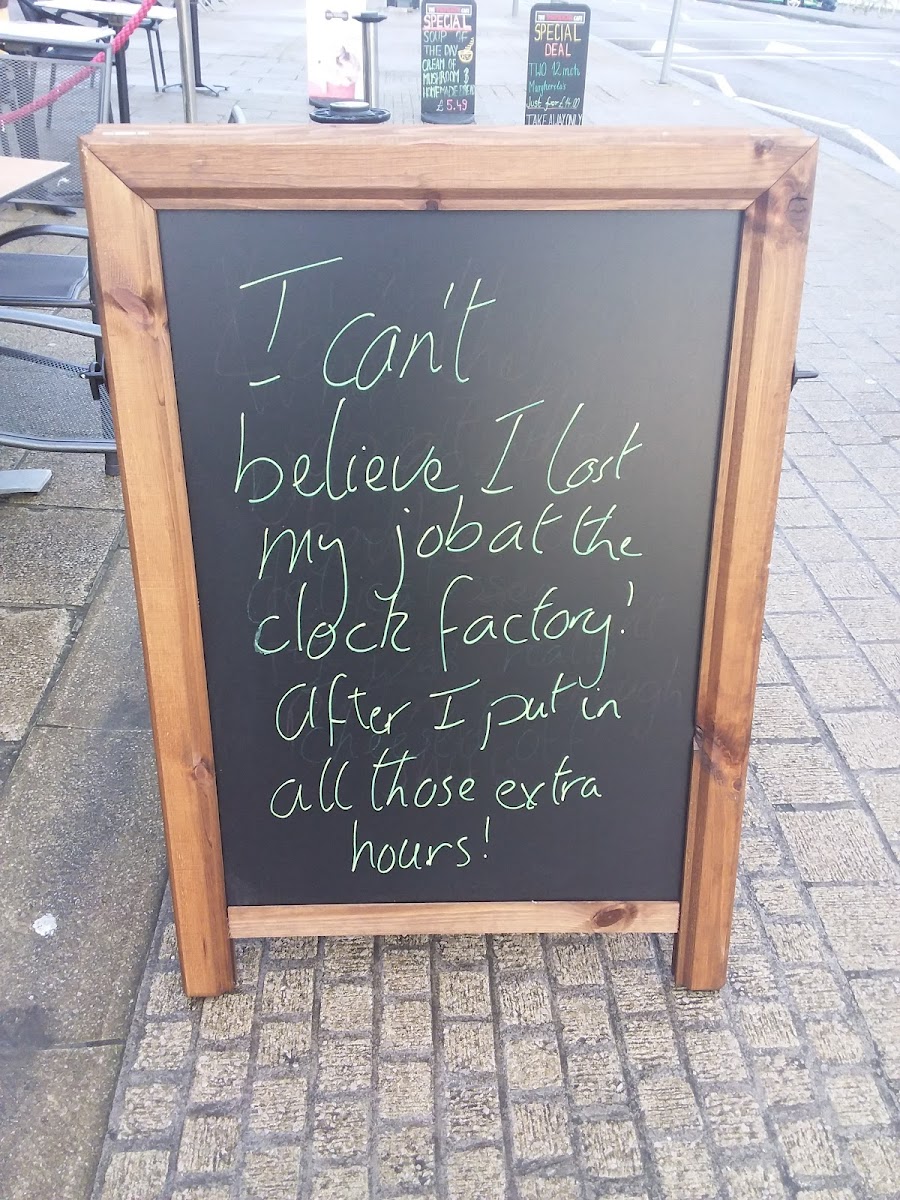 SPECIAL
SOUP OF
THE DAY
CREAM OF
MUSHROOM &
HOMEMADE BREAD
£5.49
SPECIAL
DEAL
TWO 12 inch
Margherita's
Just for £14.00
TAKE AWAY ONLY
I can't
believe I lost
my job at the
clock factory!
After I put in
all those extra
hours!